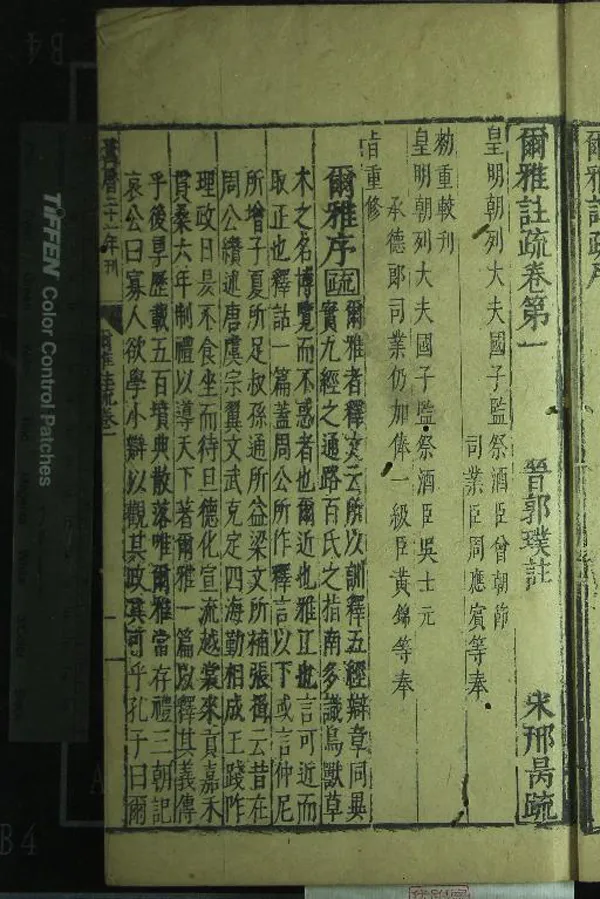 爾雅註疏卷第一 晉郭璞註 宋邢昺疏
皇明朝列大夫國子監祭酒臣曾朝節
司業臣周應賓等奉
勑重較刊
皇明朝列大夫國子監祭酒臣吳士元
承德郎司業仍加俸一級臣黃錦等奉
旨重修
爾雅序 疏 爾雅者釋文云所以訓釋五經辯章同異
實九經之通路百氏之指南多識鳥獸草
木之名博覽而不惑者也爾近也雅正也言可近而
取正也釋詁一篇蓋周公所作釋言以下或言仲尼
所增子夏所足叔孫通所益梁文所補張揖云昔在
周公纘述唐虞宗翼文武克定四海勤相成王踐阼
理政日昃不食坐而待旦德化宣流越裳來貢嘉禾
貫桑六年制禮以導天下著爾雅一篇以釋其義傳
乎後㝷歷載五百墳典散落唯爾雅當存禮三朝記
哀公曰寡人欲學小辯以觀其政其可乎孔子曰爾
萬曆二十一年刊
爾雅註疏卷一
一
爾雅註疏序
TIFFEN Color Control Patches
B4
B4
A